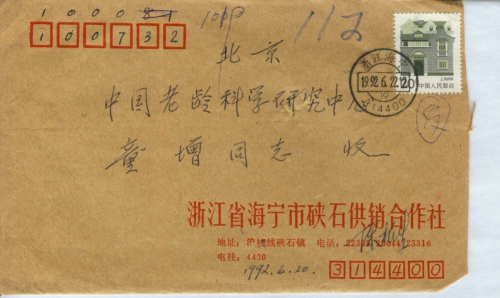 1 0 0 0
112
100732
北京
浙江海宁
1992.6.22.12
314400
20
中国人民邮政
中国老龄科学研究中心
童增同志 收
浙江省海宁市硖石供销合作社
地址：沪杭线硖石镇 电话：
电挂：4430
1992.6.20.
314400